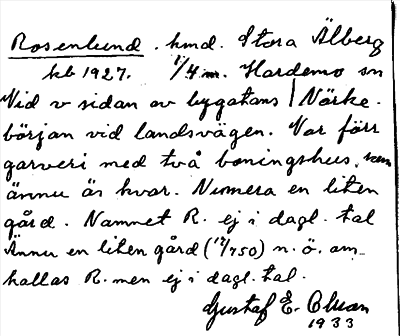 Rosenlund. hmd. Stora Älberg
kb 1927. 1/4 m. Hardemo sn
Vid v sidan av bygatans | Närke.
början vid landsvägen. Var förr
garveri med två boningshus, som
ännu äs kvar. Numera en liten
gård. Namnet R. ej i dagl. tal
Ännu en liten gård (17/750) n. ö. om
kallas R. men ej i dagl. tal.
Gustaf E.
1933